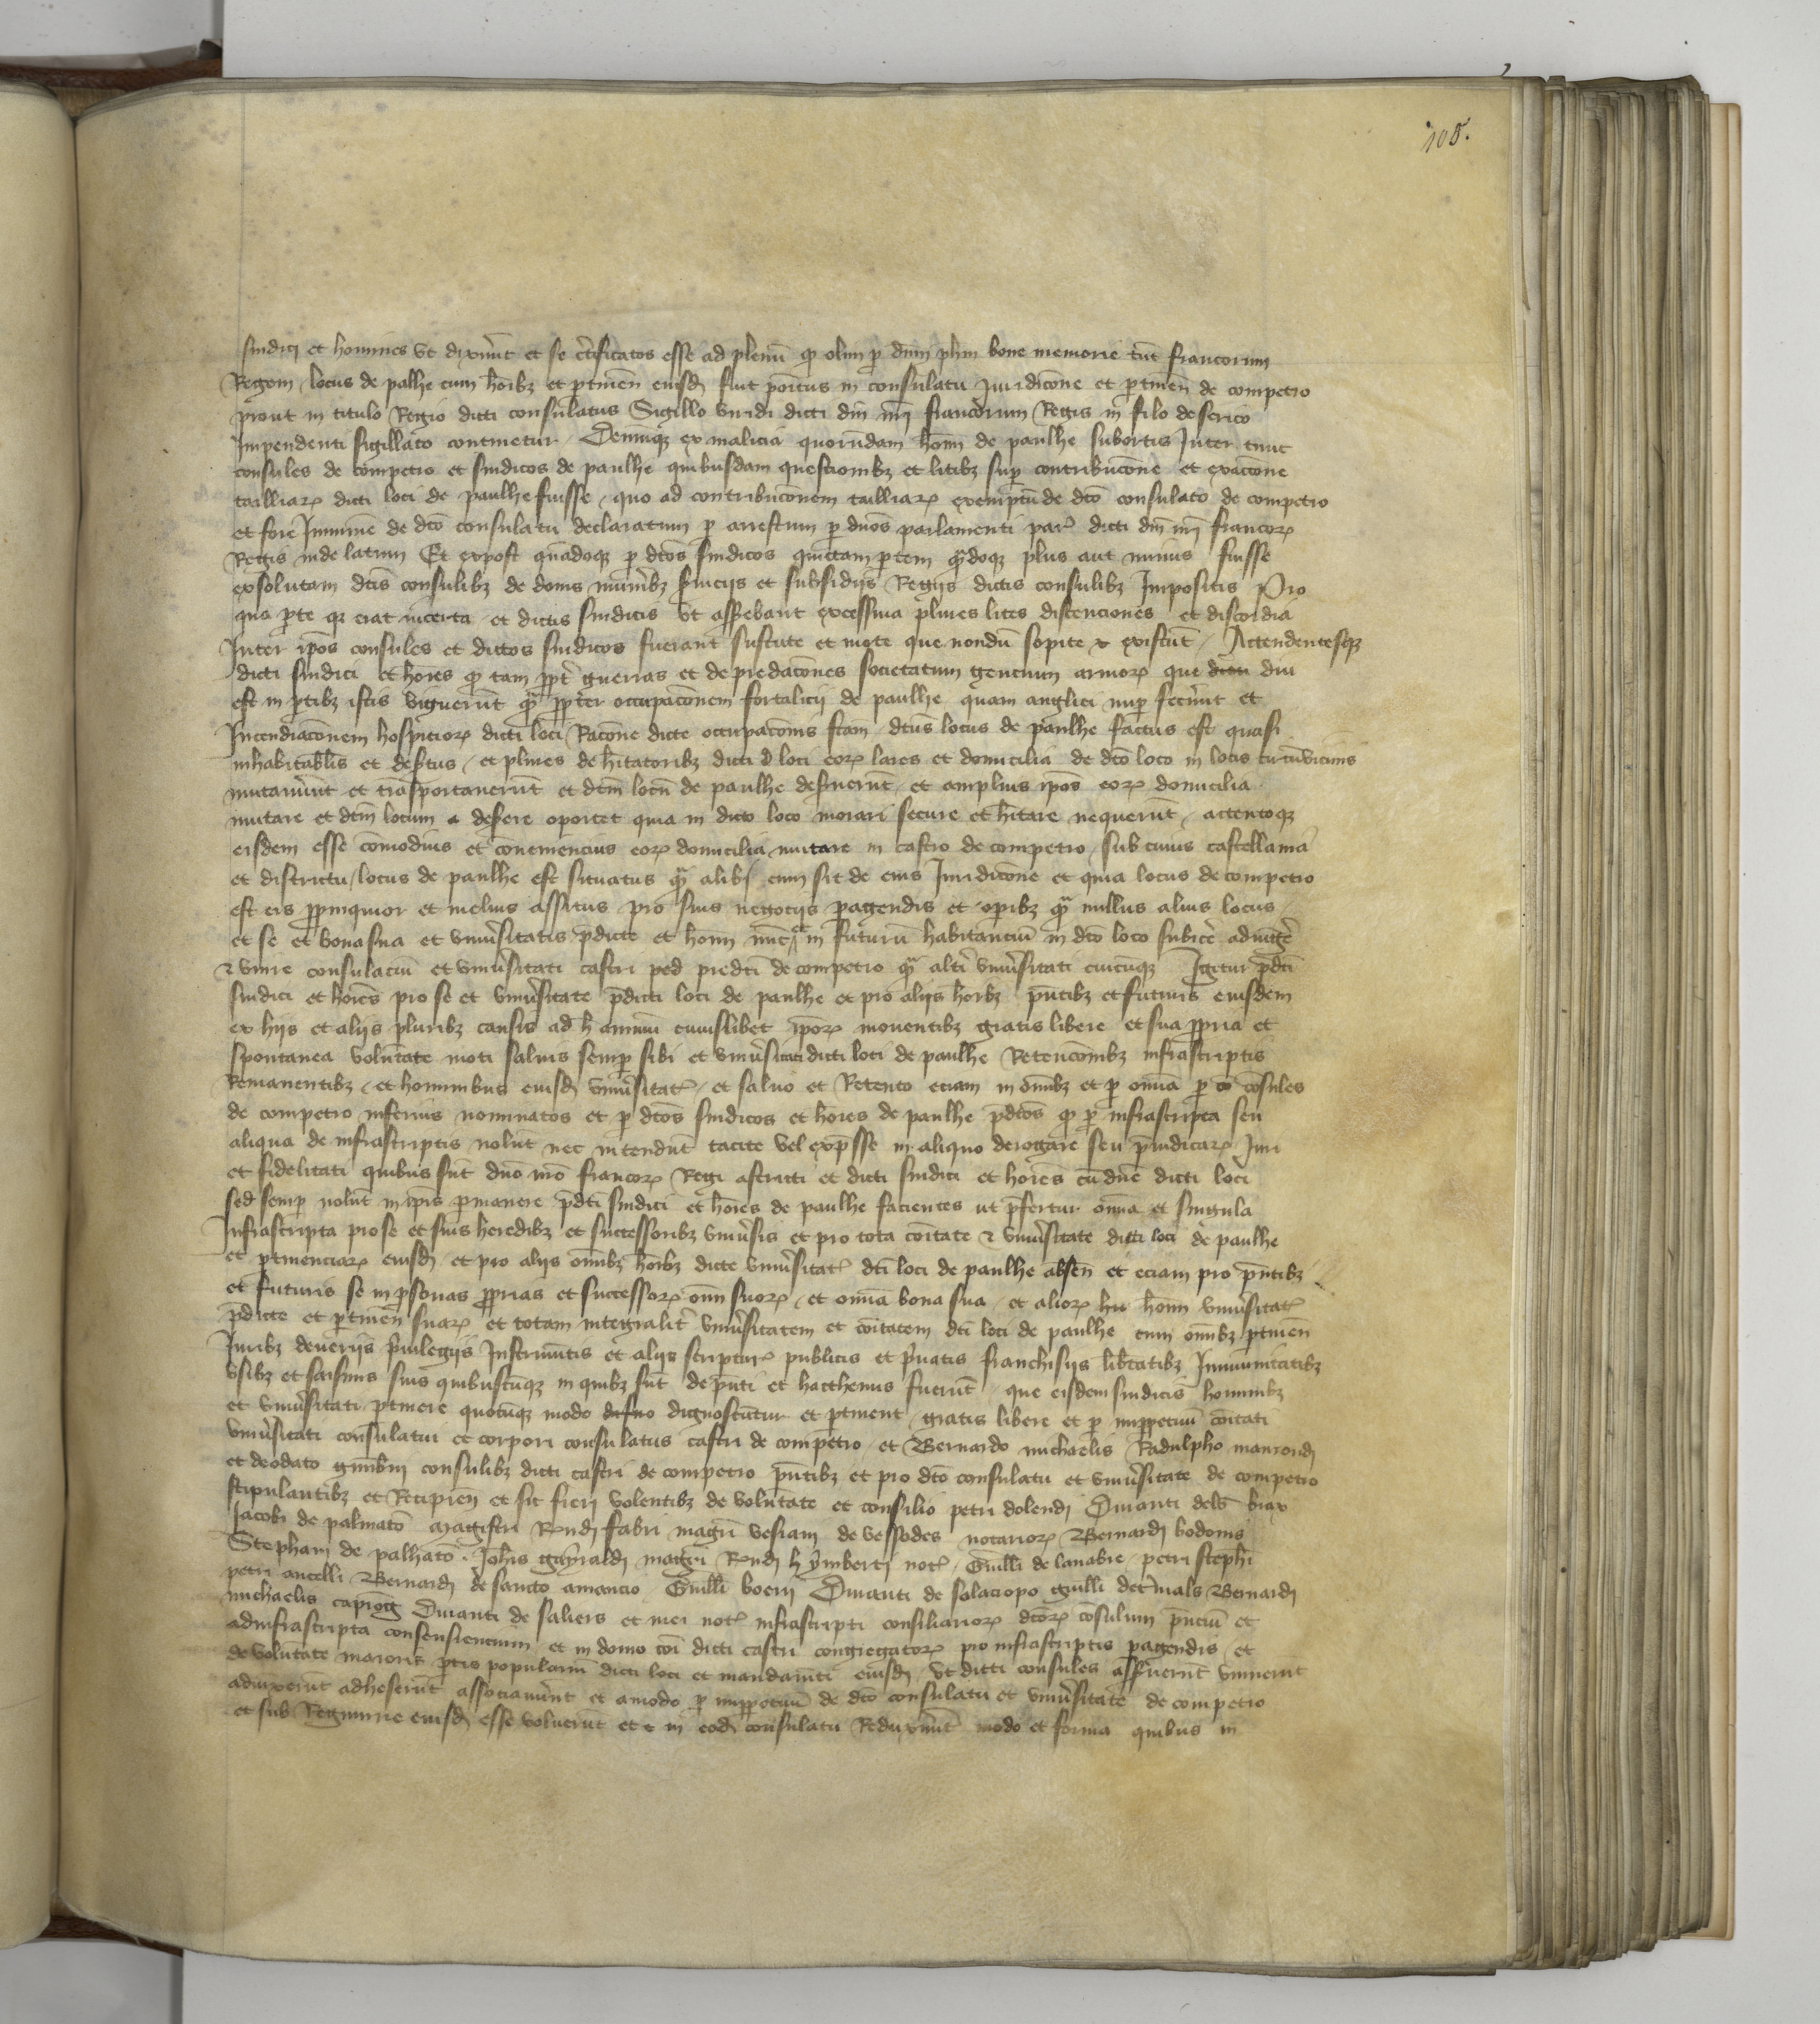 108.
sindici et homines ut dixerūt et se c̄tificatos esse ad plenū qꝫ olim p dnm phm bone memorie tūc francorum
Regem locus de palhe cum hōibꝫ et ptineñ eiusdꝫ fuit positus in consulatu Juridicōne et ptineñ de competro
prout in titulo Regio dicti consulatus Sigillo viridi dicti dni nri francorum Regis in filo de serico
Impendenti sigillato continetur Deniqꝫ ex malicia quorundam hōm de paulhe subortis Inter tunc
consules de competro et sindicos de paulhe quibusdam questionibꝫ et litibꝫ sup contribucōne et exaccōne
talliarꝫ dicti loci de paulhe fuisse quo ad contribucōnem talliarꝫ exemptū de dc̄o consulato de competro
et fore Immune de dc̄o consulatu declaratum p arrestum p dnos parlamenti par dicti dni nri francorꝫ
Regis inde latum Et expost qñdoqꝫ p dc̄os sindicos quintam ptem qñdoqꝫ plus aut minus fuisse
exsolutam dc̄is consulibꝫ de donis munibꝫ s̄uiciis et subsidiis Regiis dictis consulibꝫ Impositis Pro
qua pte qꝫ erat incerta et dictis sindicis ut asserebant excessiua plures lites discenciones et discordia
Inter ip̄os consules et dictos sindicos fuerant suscitate et mote que nondū sopite existūt Actendentesqꝫ
dicti sindici et hōies qꝫ tam ppt guerras et depredacōnes societatum gencium armorꝫ que diu
est in ptibꝫ istis viguerūt qꝫ ppter occupacōnem fortalicii de paulhe quam anglici nup fecerūt et
Incendiacōnem hospiciorꝫ dicti loci Racōne dicte occupacōnis fc̄am dc̄us locus de paulhe factus est quasi
inhabitabilis et des̄tus et plures de hītatoribꝫ dicti d loci eorꝫ lares et domicilia de dc̄o loco in locis circūvicinis
mutauerūt et trāsportauerūt et dc̄m locū de paulhe deseruerūt et amplius ip̄os eorꝫ domicilia
mutare et dc̄m locum a deserere oportet quia in dicto loco morari secure et hītare nequerūt actentoqꝫ
eisdem esse cōmodius et cōueniencius eorꝫ domicilia mutare in castro de competro sub cuius castellania
et districtu locus de paulhe est situatus qꝫ alibi cum sit de eius Juridicōne et quia locus de competro
est eis ppinquior et melius assitus pro suis negociis pagendis et opibꝫ qꝫ nullus alius locus
et se et bona sua et vniusitatis p̄dicte et hōm nūc et in futurū habitanciū in dc̄o loco subicere adiūgere
et vnire consulatui et vniusitati castri ped predc̄i de competro qꝫ alti vniusitati cuicūqꝫ Igitur p̄dc̄i
sindici et hōies pro se et vniusitate p̄dicti loci de paulhe et pro aliis hōibꝫ p̄ntibꝫ et futuris eiusdem
ex hiis et aliis pluribꝫ causis ad h animū cuiuslibet ip̄orꝫ mouentibꝫ gratis libere et sua ppria et
spontanea volūtate moti saluis semp sibi et vniusitati dicti loci de paulhe Retencōnibꝫ infrascriptis
Remanentibꝫ et hominibus eiusdꝫ vniusitatꝭ et saluo et Retento eciam in omībꝫ et p omīa p cōsules
de competro inferius nominatos et p dc̄os sindicos et hōies de paulhe p̄dc̄os qꝫ p infrascripta seu
aliqua de infrascriptis nolūt nec intendūt tacite vel exp̄sse in aliquo derogare seu p̄iudicarꝫ Juri
et fidelitati quibus sūt dno nro francorꝫ Regi astricti et dicti sindici et hōies cū dno dicti loci
sed semp volūt in ip̄is pmanere p̄dc̄i sindici et hōies de paulhe facientes ut p̄fertur omīa et singula
Infrascripta pro se et suis heredibꝫ et successoribꝫ vniusis et pro tota cōitate et vniusitate dicti loci de paulhe
et ptinenciarꝫ eiusdꝫ et pro aliis omībꝫ hōibꝫ dicte vniusitatꝭ dc̄i loci de paulhe abseñ et eciam pro p̄ntibꝫ
et futuris se in psonas pprias et successorꝫ omī suorꝫ et omīa bona sua et aliorꝫ hōm vniusitatꝭ
p̄dicte et ptineñ suarꝫ et totam integralit vniusitatem et cōitatem dc̄i loci de paulhe cum omībꝫ ptineñ
Juribꝫ deueriis p̄uilegiis Instrumētis et aliis scripturꝭ publicis et p̄uatis franchisiis lib̄tatibꝫ Immunitatibꝫ
vsibꝫ et saisinis suis quibuscūqꝫ in quibꝫ sūt de p̄nti et hacthenus fuerūt que eisdem sindicis hominibꝫ
et vniusitati ptinere quocūqꝫ modo dignoscūtur et ptinent gratis libere et p imppetuū cōitati
vniusitati consulatui et corpori consulatus castri de competro et Bernardo michaelis Radulpho
et deodato consulibꝫ dicti castri de competro p̄ntibꝫ et pro dc̄o consulatu et vniusitate de competro
stipulantibꝫ et Recipieñ et sic fieri volentibꝫ de volūtate et consilio petri dolendi Duranti
Jacobi de palmato Magistri Rōndi fabri magri vesiani de vessodes notariorꝫ Bernardi bodonis
Stephani de palhato Joħis gayraldi magri Rōndi notꝭ Guilli de lanabre petri stephi
petri ancelli Bernardi de sancto amancio Guilli boerii Duranti de solaciopo guilli Bernardi
michaelis Duranti de saliers et mei notꝭ infrascripti consiliariorꝫ dc̄orꝫ cōsulum p̄nciū et
ad infrascripta consensiencium et in domo cōi dicti castri congregatorꝫ pro infrascriptis pagendis et
de volūtate maioris ptis popularium dicti loci et mandamēti eiusdꝫ ut dicti consules asseruerūt vnuerūt
adiuxerūt adheserūt associauerūt et amodo p imppetuū de dc̄o consulatu et vniusitate de competro
et sub Regimine eiusdꝫ esse voluerūt et in eodꝫ consulatu Reduxerūt modo et forma quibus in